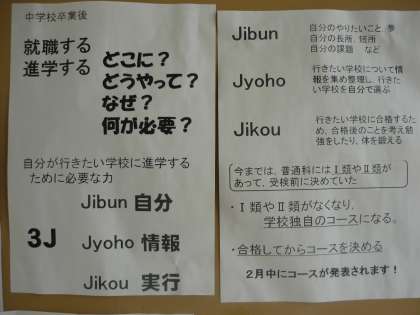 中学校卒業後
就職する
進学する
どこに？
どうやって？
なぜ？
何が必要？
自分が行きたい学校に進学する
ために必要な力
3J
Jibun 自分
Jyoho 情報
Jikou 実行
Jibun
自分のやりたいこと、夢
自分の長所、短所
自分の課題 など
Jyoho
行きたい学校について情
報を集め整理し、行きた
い学校を自分で選ぶ
Jikou
行きたい学校に合格するた
め、合格後のことを考え勉
強をしたり、体を鍛える
今までは、普通科にはⅠ類やⅡ類が
あって、受検前に決めていた
・Ⅰ類やⅡ類がなくなり、
学校独自のコースになる。
・合格してからコースを決める
2月中にコースが発表されます！